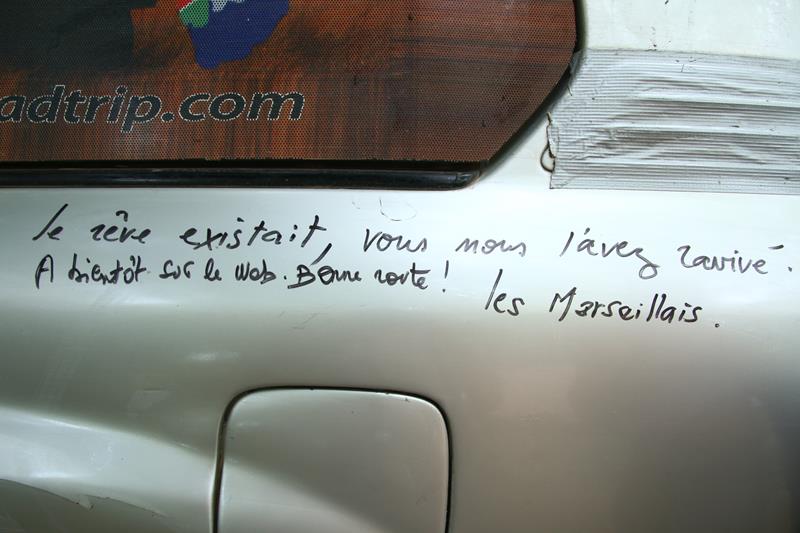 adtrip.com
le rêve existait, vous nous l'avez ravivé.
A bientôt sur le web. Bonne route !
les Marseillais.